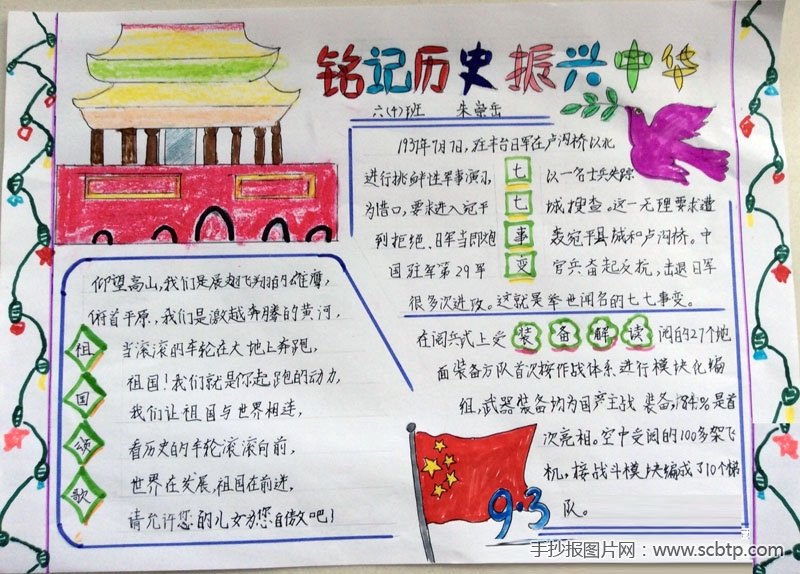 铭记历史 振兴中华
六(十)班 朱崇岳
1937年7月7日,驻丰台日军在卢沟桥以北
进行挑衅性军事演习,
以一名士兵失踪
为借口,要求进入宛平
城搜查。这一无理要求遭
到拒绝、日军当即炮
轰宛平县城和卢沟桥。中
国驻军第29军
官兵奋起反抗,击退日军
很多次进攻。这就是举世闻名的七七事变。
七
七
事
变
仰望高山,我们是展翅飞翔的雄鹰,
俯首平原,我们是激越奔腾的黄河,
当滚滚的车轮在大地上奔跑,
祖国!我们就是你起跑的动力,
我们让祖国与世界相连,
看历史的车轮滚滚向前,
世界在发展,祖国在前进,
请允许您的儿女为您自傲吧!
祖
国
颂
歌
在阅兵式上受 装备解读 阅的27个地
面装备方队首次按作战体系进行模块化编
组,武器装备均为国产主战 装备,84%是首
次亮相。空中受阅的100多架飞
机,按战斗模块编成了10个梯
队。
9·3
手抄报图片网:www.scbtp.com
www.scbtp.com